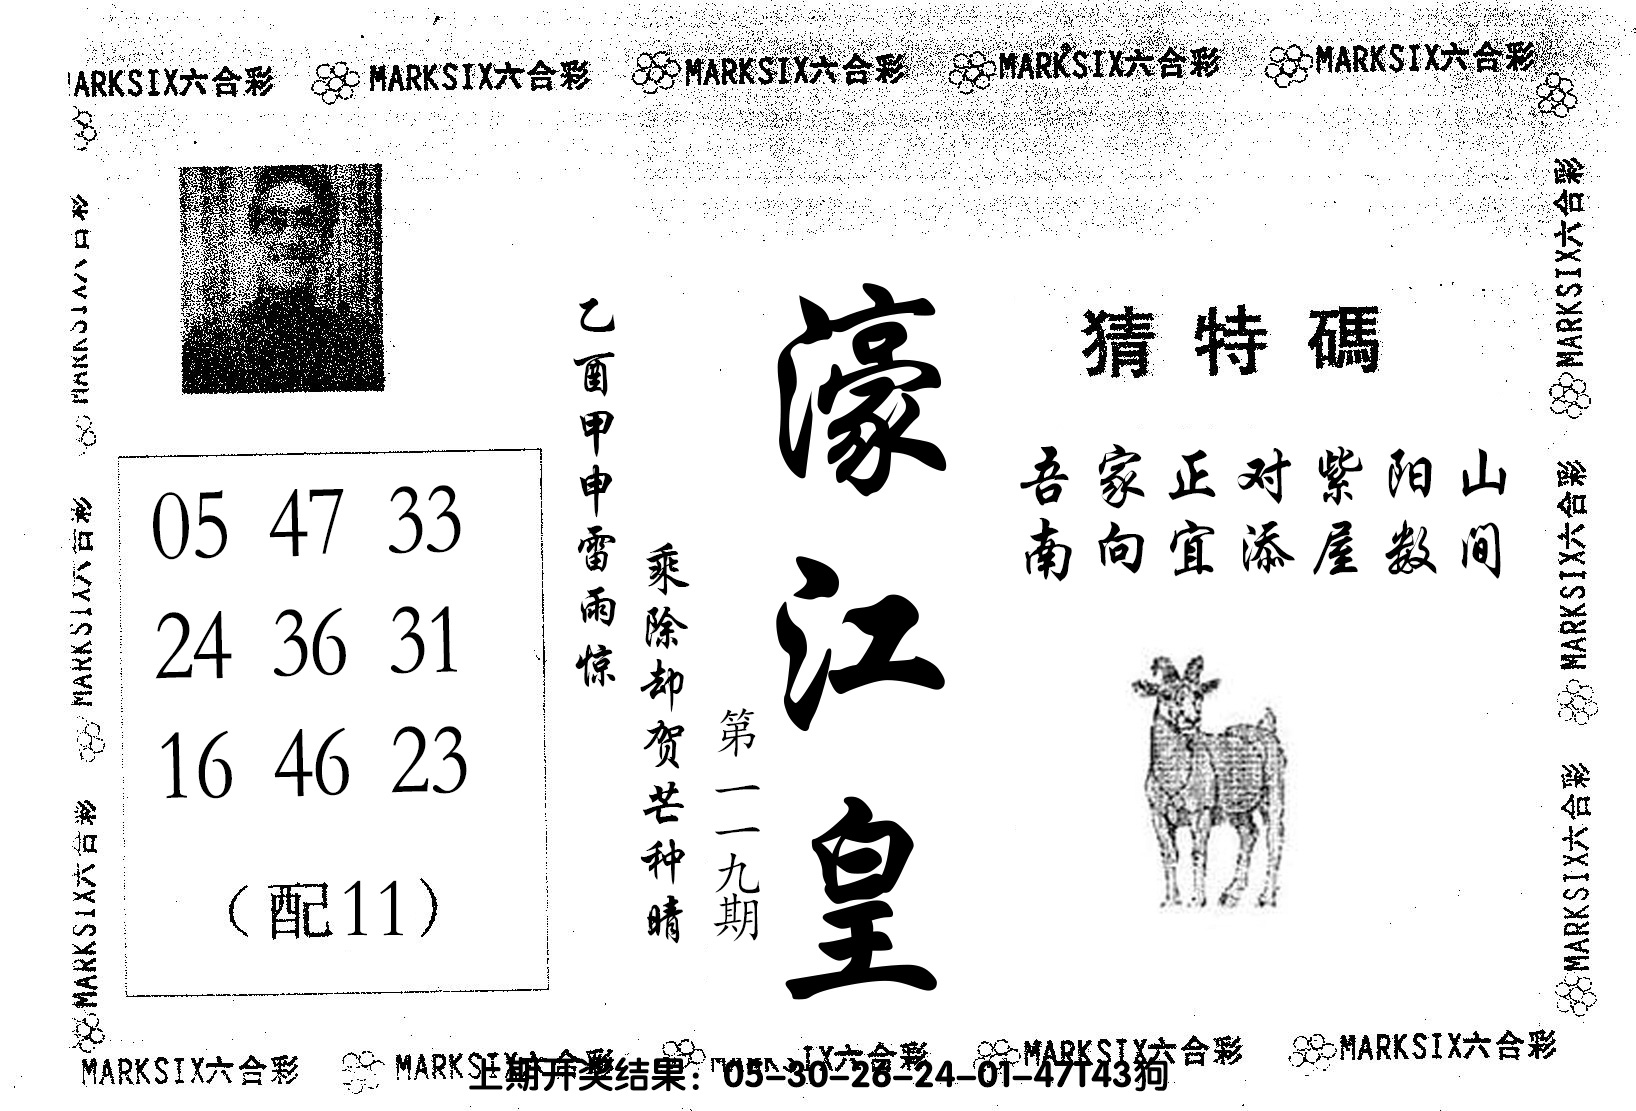 MARKSIX六合彩 MARKSIX六合彩 MARKSIX六合彩 MARKSIX六合彩
猜特碼
吾家正对紫阳山
南向宜添屋数间
濠江皇
第一一九期
乙酉甲申雷雨惊
乘除却贺芒种晴
05 47 33
24 36 31
16 46 23
（配11）
MARKSIX六合彩
MARKSIX六合彩
MARKSIX六合彩
MARKSIX六合彩
MARKSIX六合彩
MARKSIX六合彩 MARKSIX六合彩 MARKSIX六合彩 MARKSIX六合彩
上期开奖结果：05-30-26-24-01-47T43狗